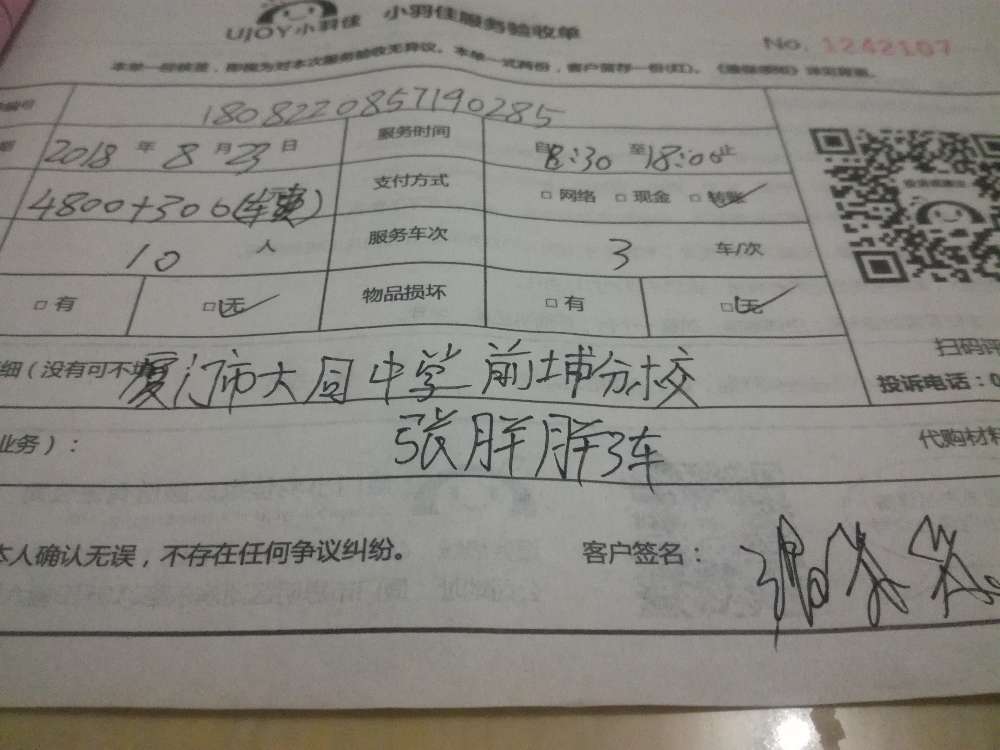 UJOY小羽佳 小羽佳服务验收单
No. 1242107
本单一经核签，即视为对本次服务验收无异议。本单一式两份，客户留存一份(红)。
编号 1808220857190285
2018 年 8 月 23 日 服务时间 自8:30 至18:00止
4800+300(车费) 支付方式 □ 网络 □ 现金 □ 转账
10 人 服务车次 3 车/次
□ 有 □ 无 物品损坏 □ 有 □ 无
细（没有可不填 厦门市大同中学前埔分校
扫码评
投诉电话：0
业务）： 张胖胖3车 代购材料
本人确认无误，不存在任何争议纠纷。 客户签名：